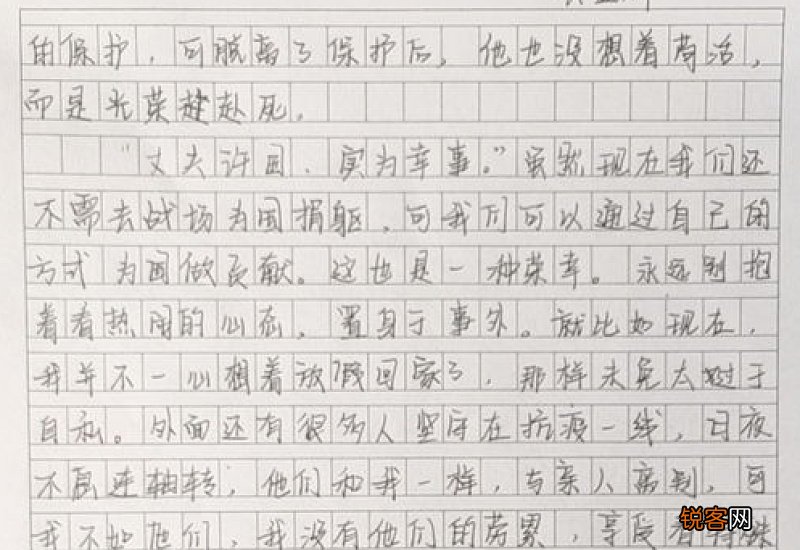 的保护，可脱离了保护后，他也没想着苟活，
而是光荣赴死。
"丈夫许国，实为幸事。"虽然现在我们还
不需去战场为国捐躯，可我们可以通过自己的
方式为国做贡献。这也是一种荣幸。永远别抱
着看热闹的心态，置身于事外。就比如现在，
我并不一心想着放假回家了，那样未免太过于
自私。外面还有很多人坚守在抗疫一线，日夜
不离连轴转，他们和我一样，与亲人离别，可
我不如他们，我没有他们的劳累，享受着特殊
锐客网